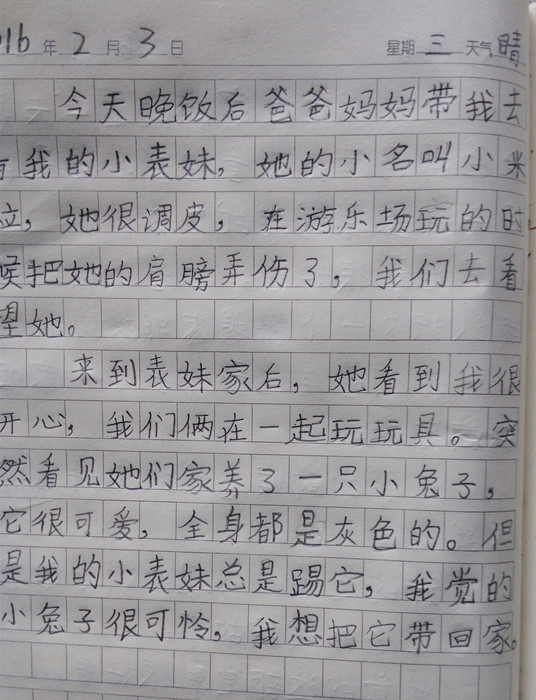 016 年 2 月 3 日 星期 三 天气 晴
今天晚饭后爸爸妈妈带我去
看我的小表妹，她的小名叫小米
粒，她很调皮，在游乐场玩的时
候把她的肩膀弄伤了，我们去看
望她。
来到表妹家后，她看到我很
开心，我们俩在一起玩玩具。突
然看见她们家养了一只小兔子，
它很可爱，全身都是灰色的。但
是我的小表妹总是踢它，我觉的
小兔子很可怜，我想把它带回家。